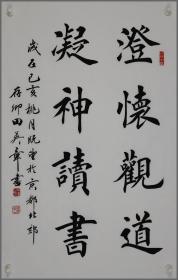 澄懷觀道
凝神讀書
歲在己亥桃月既望於京都北郊
存卿田英章書